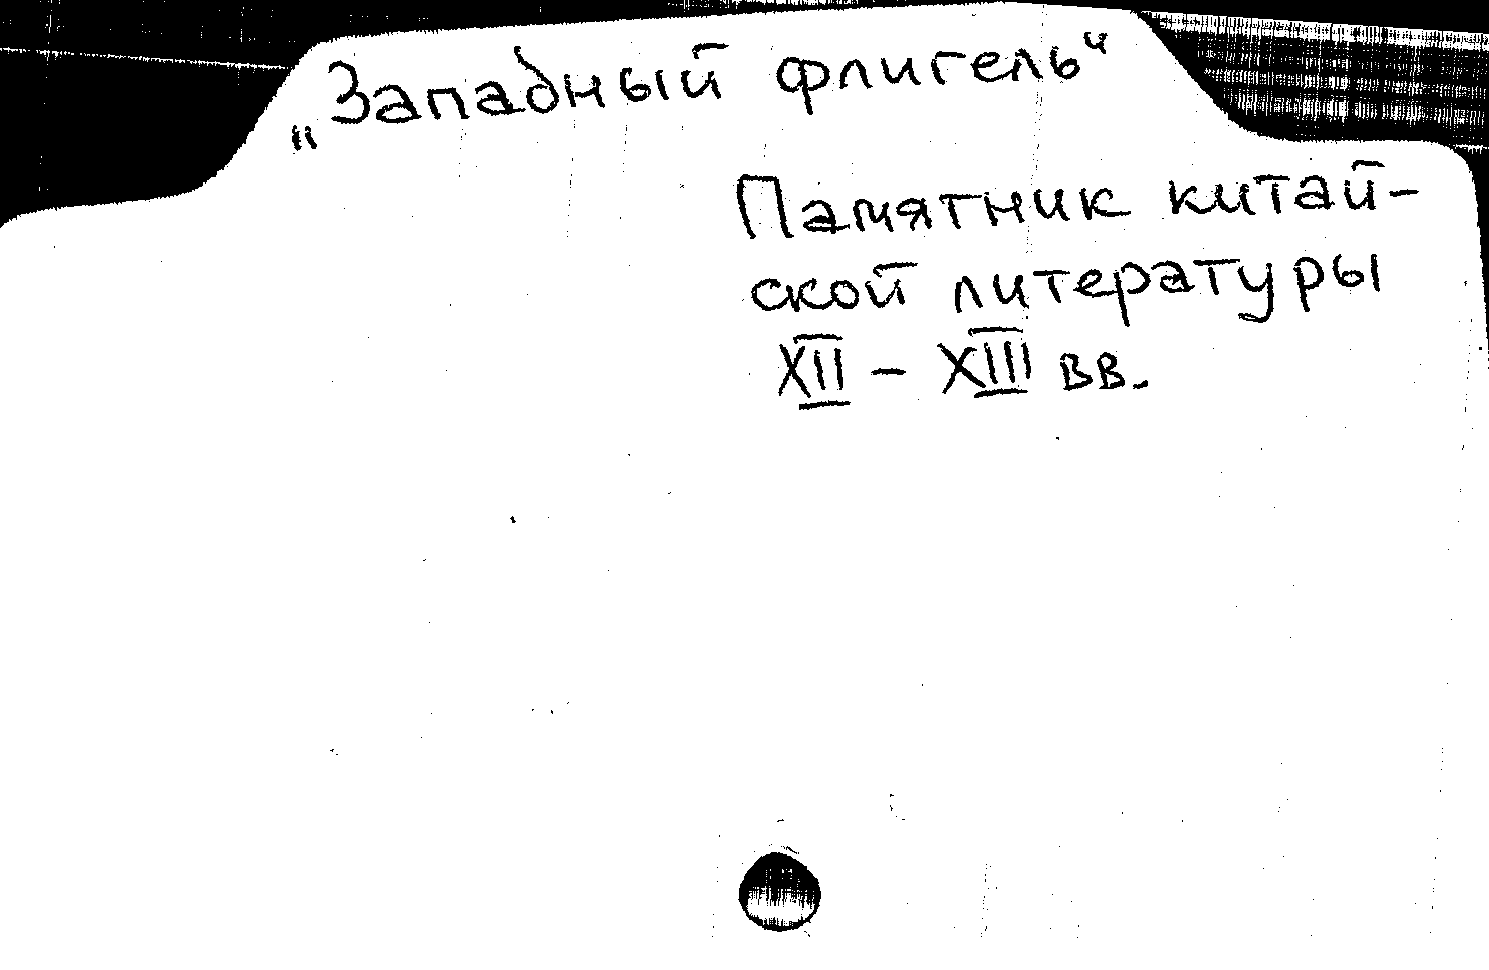 „Западный флигель“
Памятник китай-
ской литературы
XII – XIII вв.